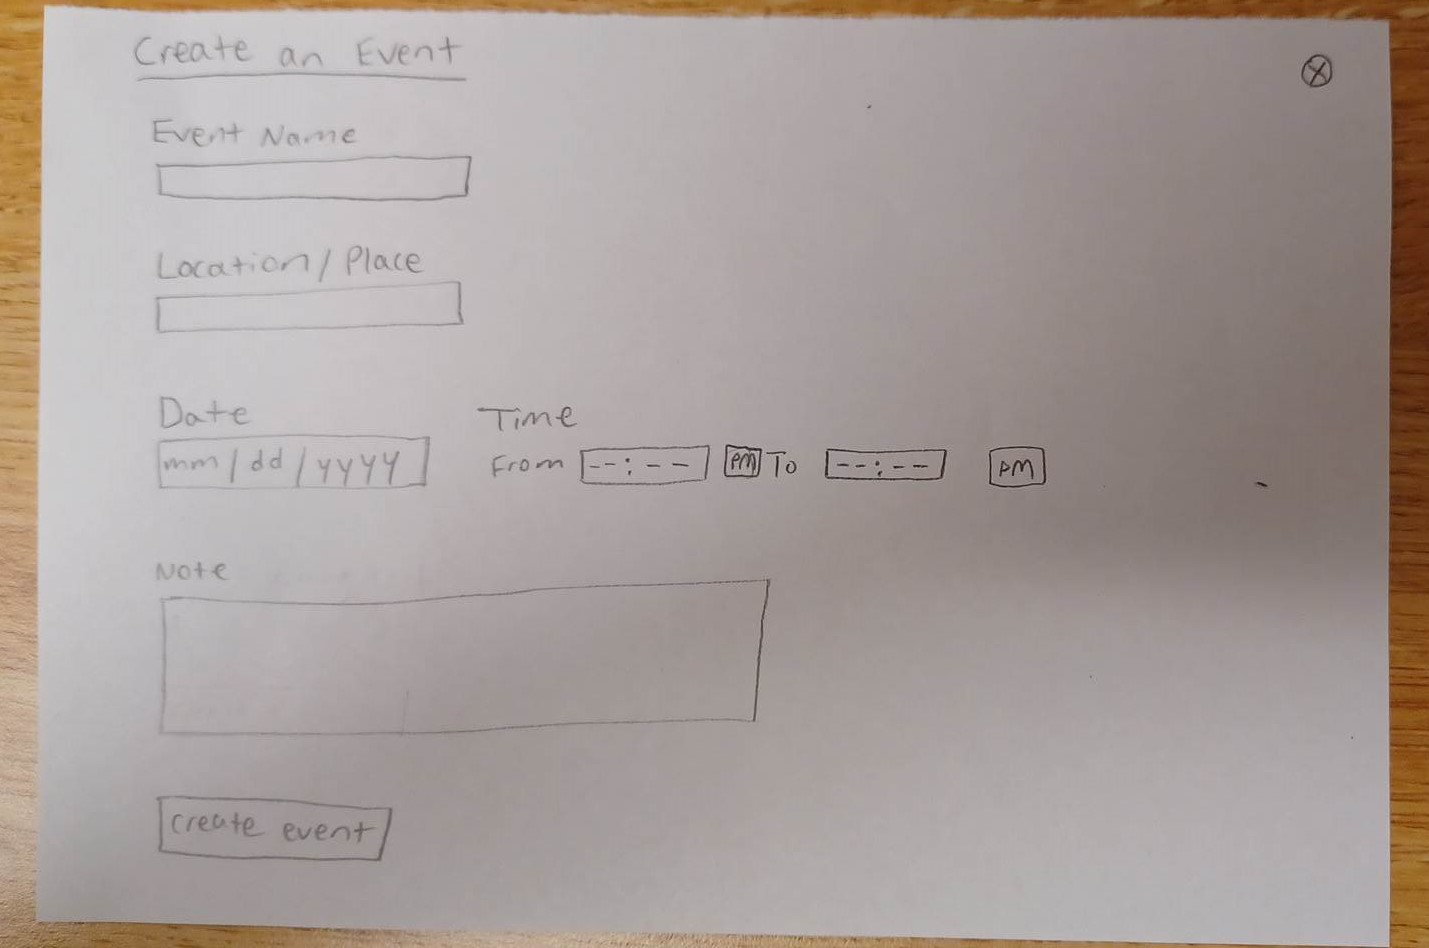 Create an Event
Event Name
Location/Place
Date
Time
mm/dd/yyyy
From --:-- PM To --:-- PM
Note
create event